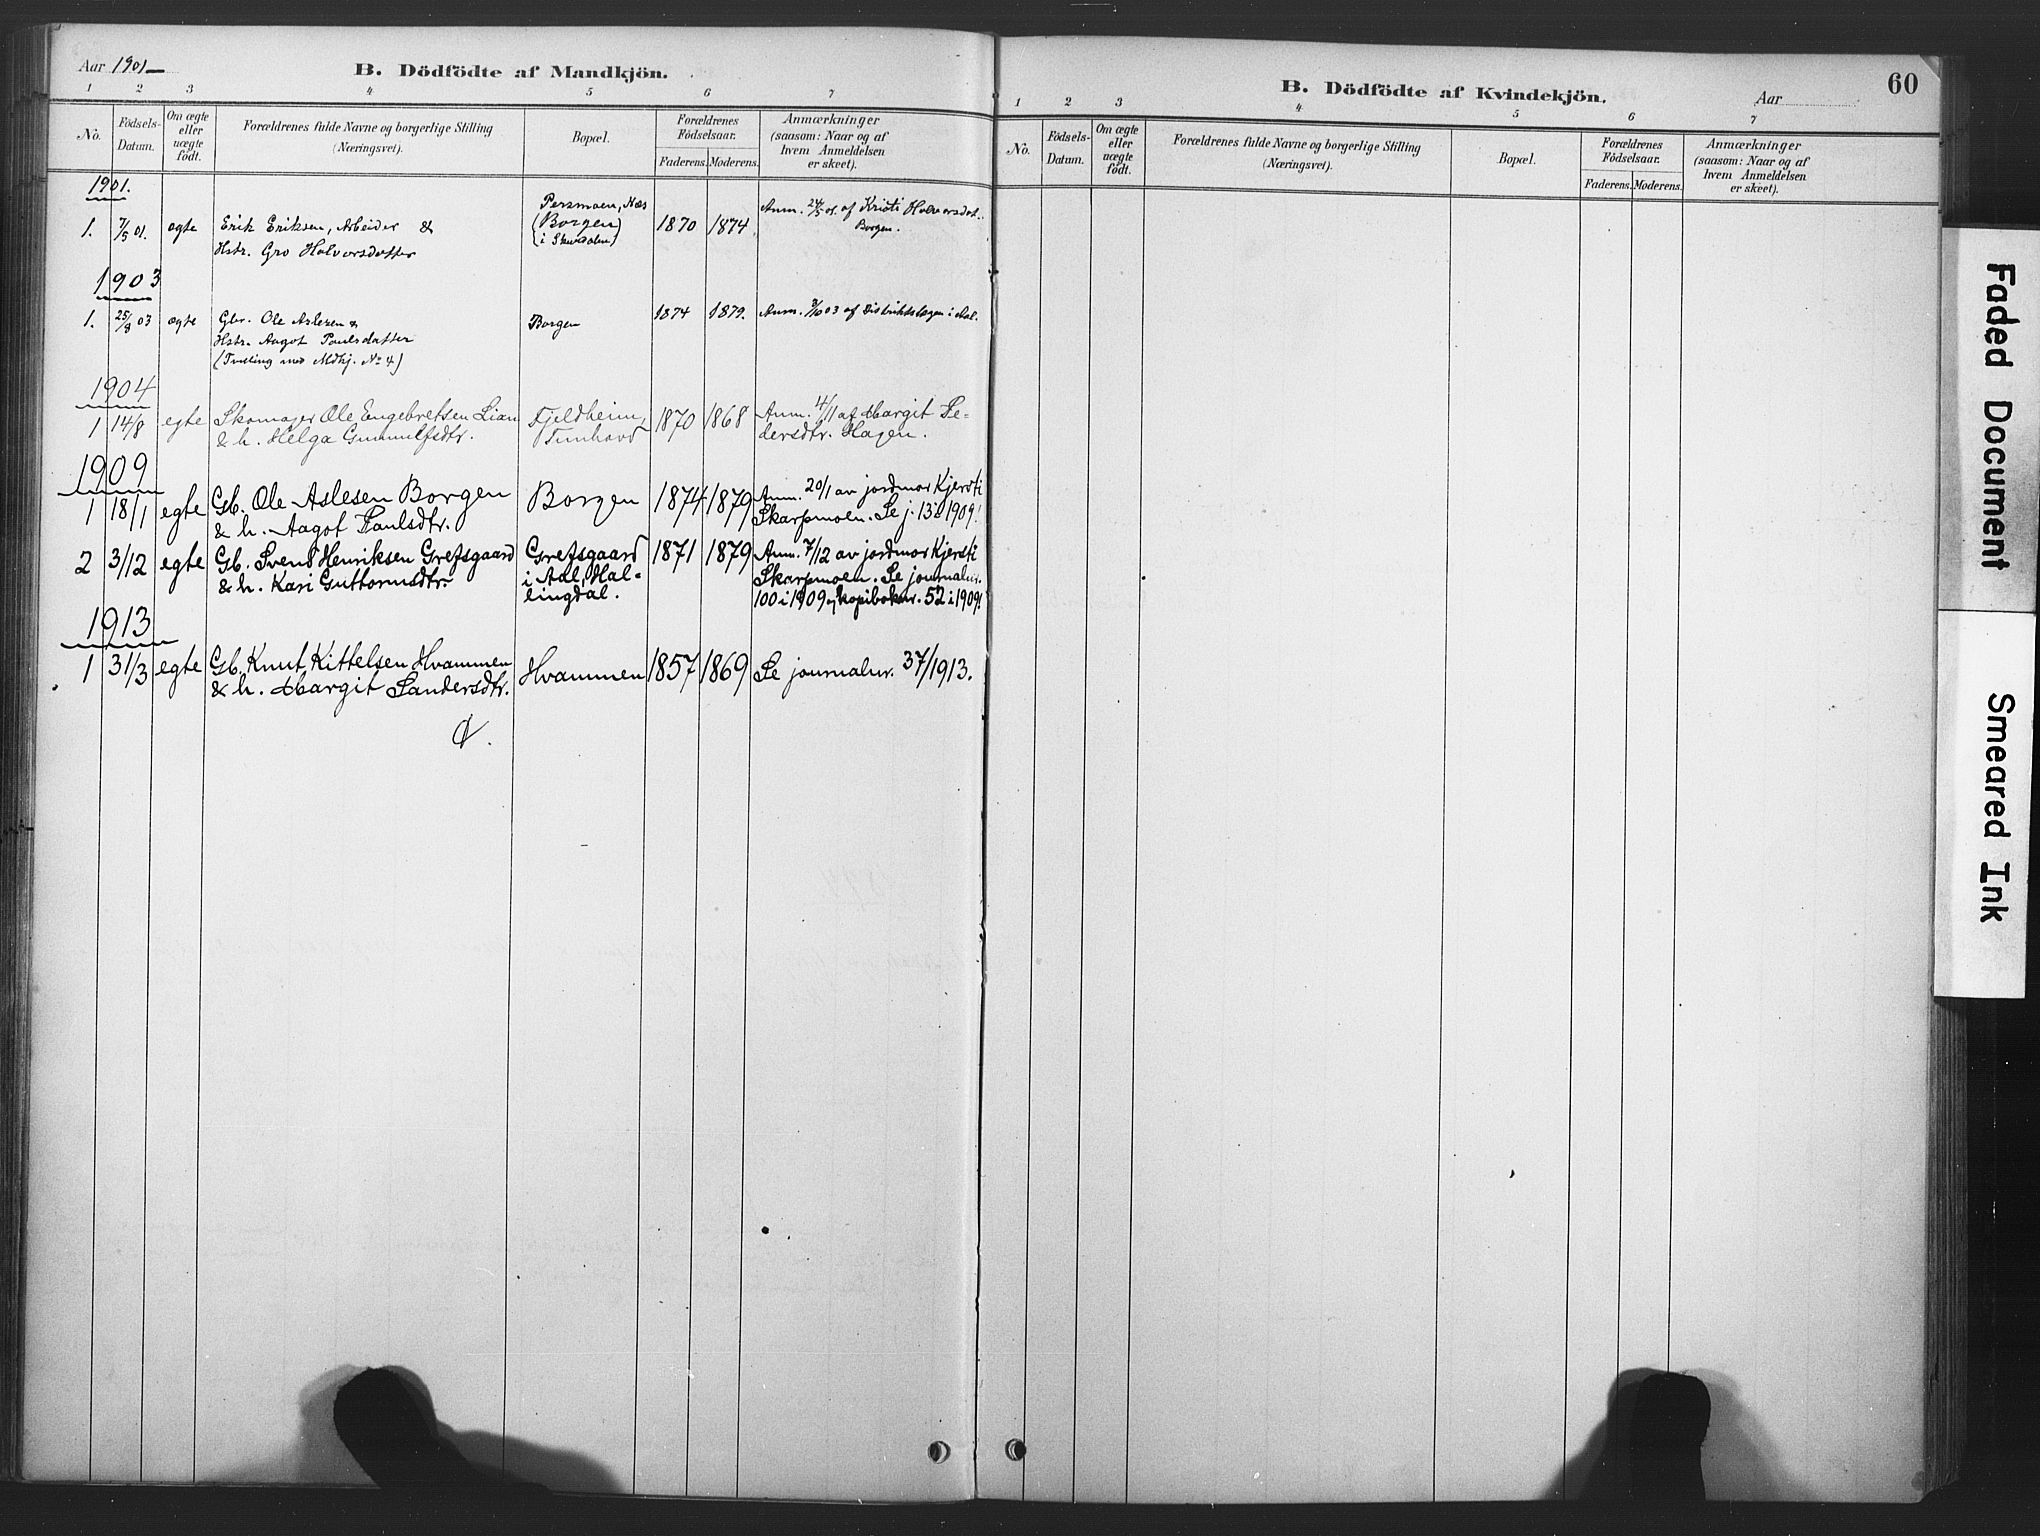 Aar 1901
B. Dödfödte af Mandkjön.
1 2 3 4 5 6 7
No.
Födsels-
Datum.
Om ægte
eller
uægte
födt.
Forældrenes fulde Navne og borgerlige Stilling
(Næringsvei).
Bopæl.
Forældrenes
Födselsaar.
Faderens. Moderens.
Anmærkninger
(saasom: Naar og af
hvem Anmeldelsen
er skeet).
1901.
1. 7/5 01. egte Erik Eriksen, Arbeider &
Hstr. Gro Halvorsdatter
Persmoen, Næs
(Borgen)
(i Skurdalen)
1870 1874.
Anm. 24/5 01. af Kristi Halvorsdat.
Borgen.
1903
1. 25/8 03 egte Gbr. Ole Aslesen &
Hstr. Aagot Paulsdatter
(Tvilling med Mdkj. No 4)
Borgen
1874 1879.
Anm. 3/10 03 af Distriktslægen i Aal.
1904
1 14/8 egte Skomager Ole Engebretsen Lian
& h. Helga Gunnulfsdtr.
Fjeldheim,
Tunhovd
1870 1868
Anm. 4/11 af Margit Pe-
dersdtr. Hagen.
1909
1 18/1 egte Gb. Ole Aslesen Borgen
& h. Aagot Paulsdtr.
Borgen
1874 1879
Anm. 20/1 av jordmor Kjersti
Skarpmoen. Se j. 13 i 1909!
2 3/12 egte Gb. Svend Henriksen Grefsgaard
& h. Kari Guttormsdtr.
Grefsgaard
i Aal, Hal-
lingdal.
1871 1879
Anm. 7/12 av jordmor Kjersti
Skarpmoen. Se journalnr.
100 i 1909 og kopiboknr. 52 i 1909!
1913
1 31/3 egte Gb. Knut Kittelsen Hvammen
& h. Margit Sandersdtr.
Hvammen
1857 1869
Se journalnr. 37/1913.
60
B. Dödfödte af Kvindekjön.
Aar
1 2 3 4 5 6 7
No.
Födsels-
Datum.
Om ægte
eller
uægte
födt.
Forældrenes fulde Navne og borgerlige Stilling
(Næringsvei).
Bopæl.
Forældrenes
Födselsaar.
Faderens. Moderens.
Anmærkninger
(saasom: Naar og af
hvem Anmeldelsen
er skeet).
Faded Document
Smeared Ink